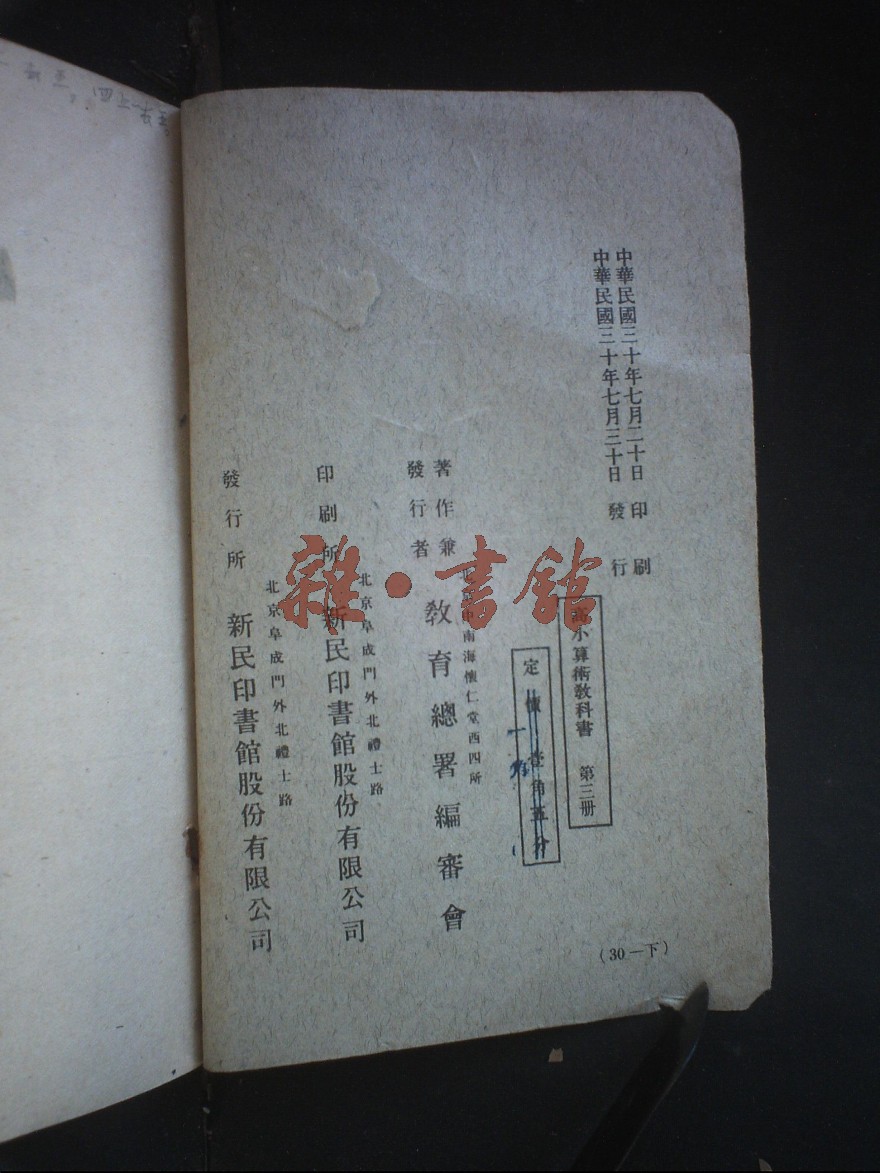 中華民國三十年七月二十日 印刷
中華民國三十年七月三十日 發行
高小算術教科書 第三册
定價壹角五分
著作兼
發行者
中南海懷仁堂西四所
教育總署編審會
印刷所
北京阜成門外北禮士路
新民印書館股份有限公司
發行所
北京阜成門外北禮士路
新民印書館股份有限公司
(30.—下)
雜·書館